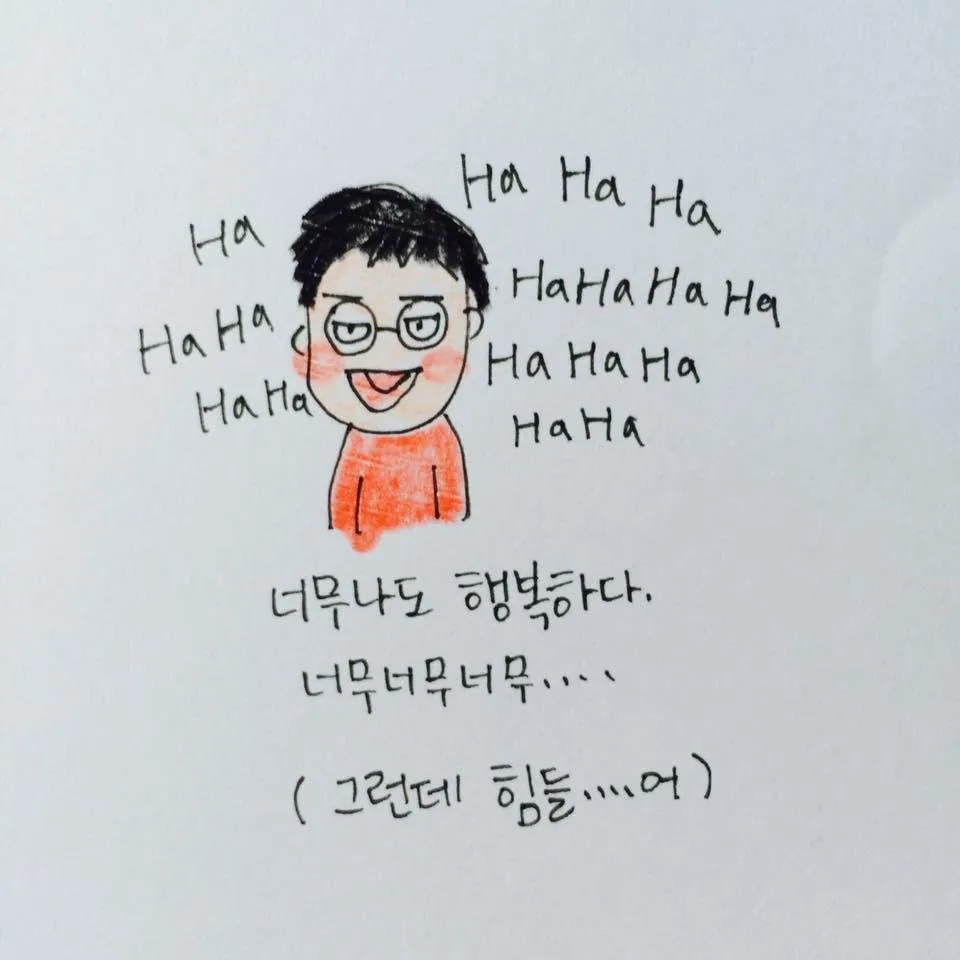 Ha
Ha Ha Ha
HaHa Ha Ha
Ha Ha
Ha Ha Ha
Ha Ha
Ha Ha
너무나도 행복하다.
너무너무너무....
(그런데 힘들.....어)